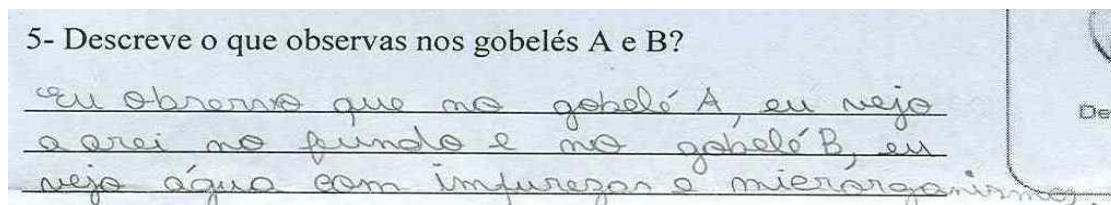 5- Descreve o que observas nos gobelés A e B?
eu observo que no gobelé A, eu vejo
a arei no fundo e no gobelé B, eu
vejo água com impurezas e microrganismos.
De